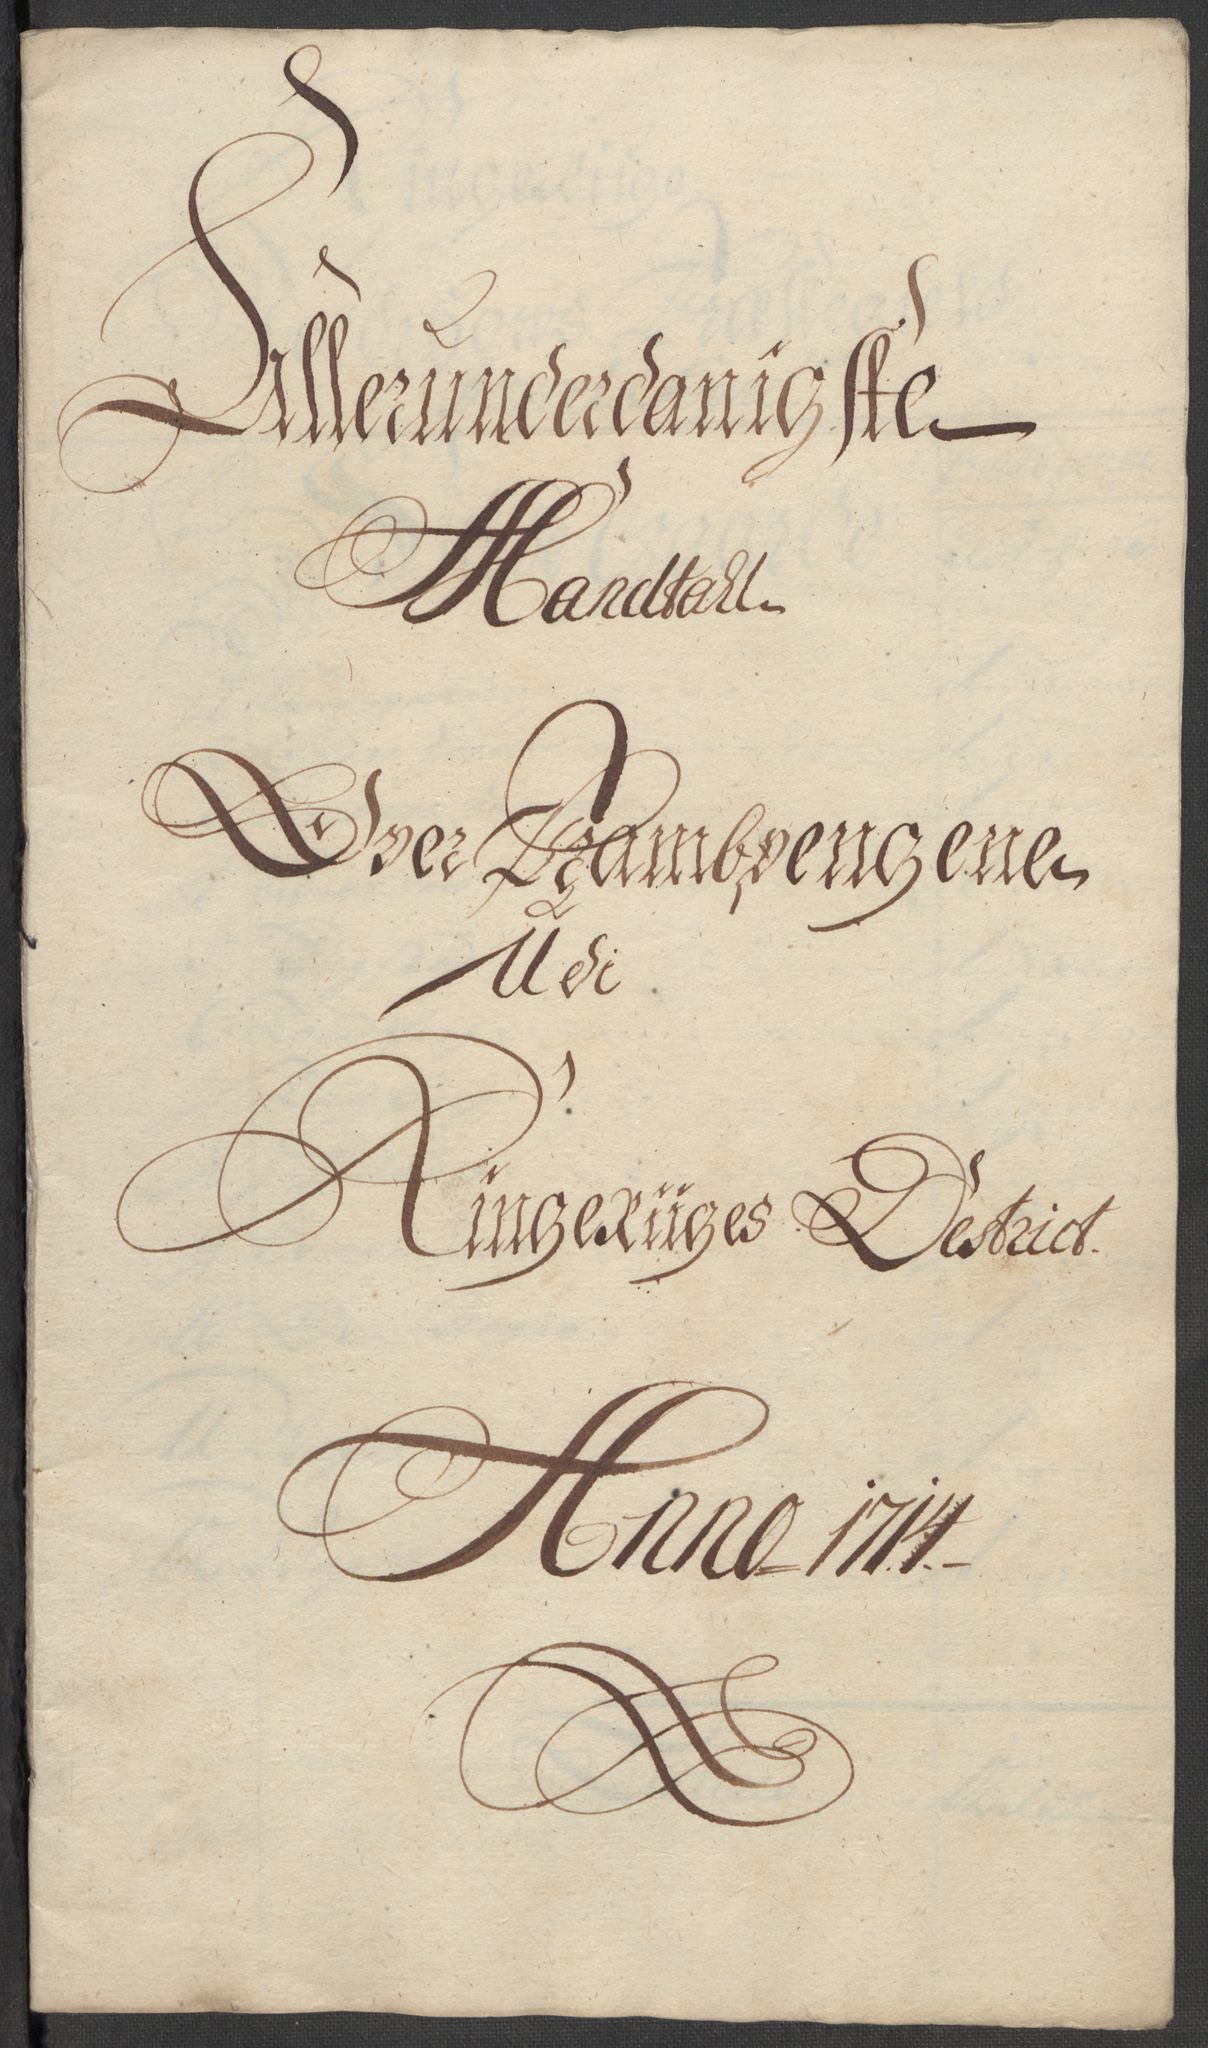 Allerunderdanigste
Mandtall
Over Krambpengene
Udi
Ringeriiges Destrict.
Anno 1714